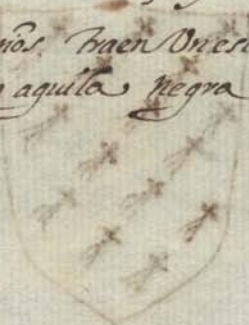 nõs. traen Un es
aguila negra